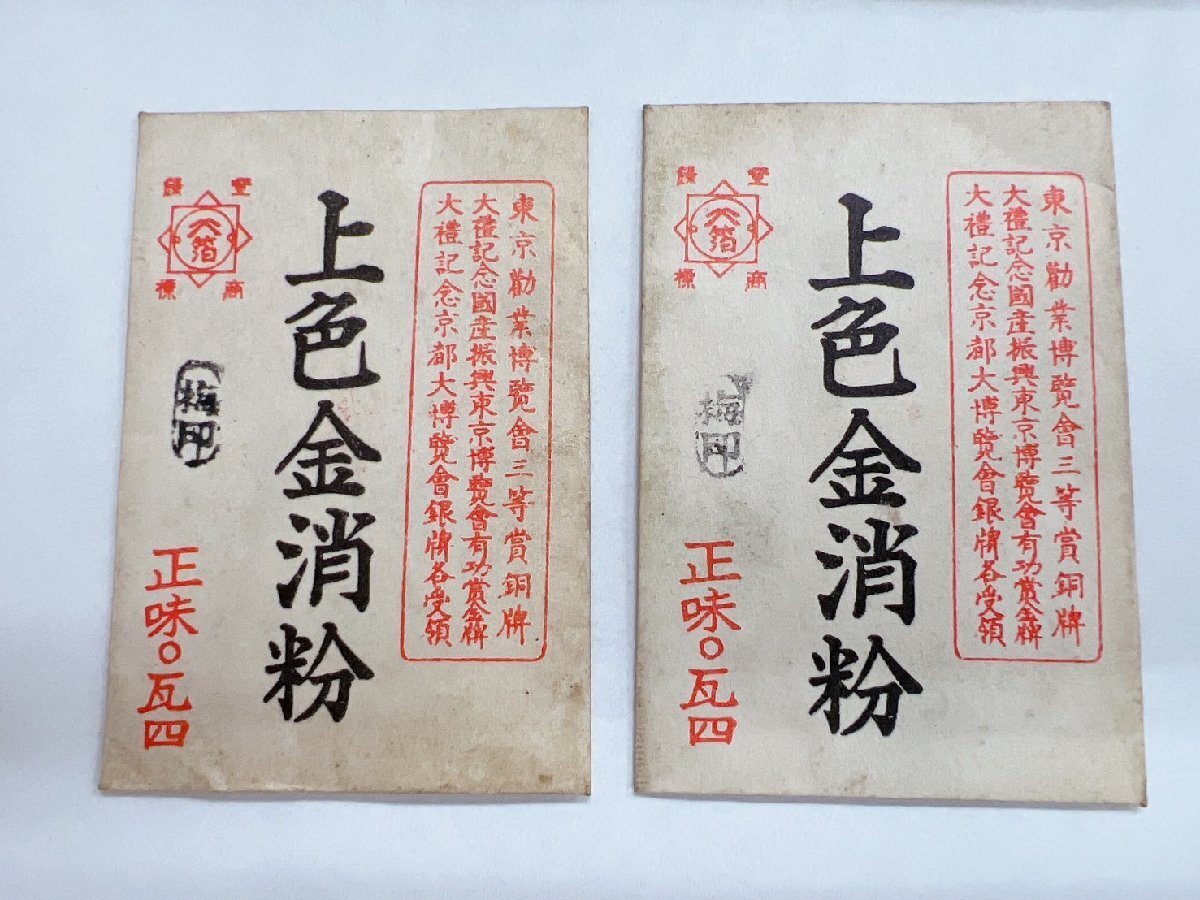 東京勸業博覽會三等賞銅牌
大禮記念國產振興東京博覽會有功賞金牌
大禮記念京都大博覽會銀牌各受領
上色金消粉
登錄
商標
天箔
梅印
正味〇瓦四
東京勸業博覽會三等賞銅牌
大禮記念國產振興東京博覽會有功賞金牌
大禮記念京都大博覽會銀牌各受領
上色金消粉
登錄
商標
天箔
梅印
正味〇瓦四